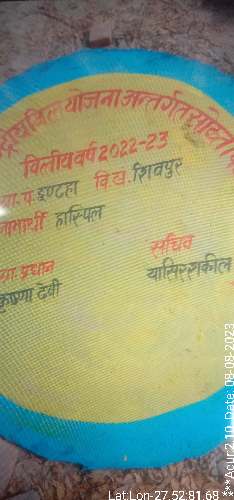 योजना अन्तर्गत
वित्तीय वर्ष 2022-23
ग्रा.प. इण्टहा वि.ख. शिवपुर
लाभार्थी हास्पिल
सचिव
ग्रा. प्रधान यासिर शकील
कृष्णा देवी
Lat:Lon-27.52:81.68
***Acur:2.10, Date: 08-08-2023